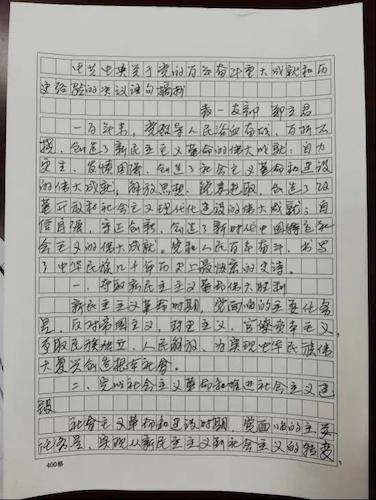 中共中央关于党的百年奋斗重大成就和历
史经验的决议语句摘抄
一百年来，党领导人民浴血奋战、百折不
挠，创造了新民主主义革命的伟大成就；自力
更生、发愤图强，创造了社会主义革命和建设
的伟大成就；解放思想、锐意进取，创造了改
革开放和社会主义现代化建设的伟大成就；自
信自强、守正创新，创造了新时代中国特色社
会主义的伟大成就。党和人民百年奋斗，书写
了中华民族几千年历史上最恢宏的史诗。
一、夺取新民主主义革命伟大胜利
新民主主义革命时期，党面临的主要任务
是，反对帝国主义、封建主义、官僚资本主义，
争取民族独立、人民解放，为实现中华民族伟
大复兴创造根本社会
二、完成社会主义革命和推进社会主义建
设
社会主义革命和建设时期，党面临的主要
任务是，实现从新民主主义到社会主义的转变
400格